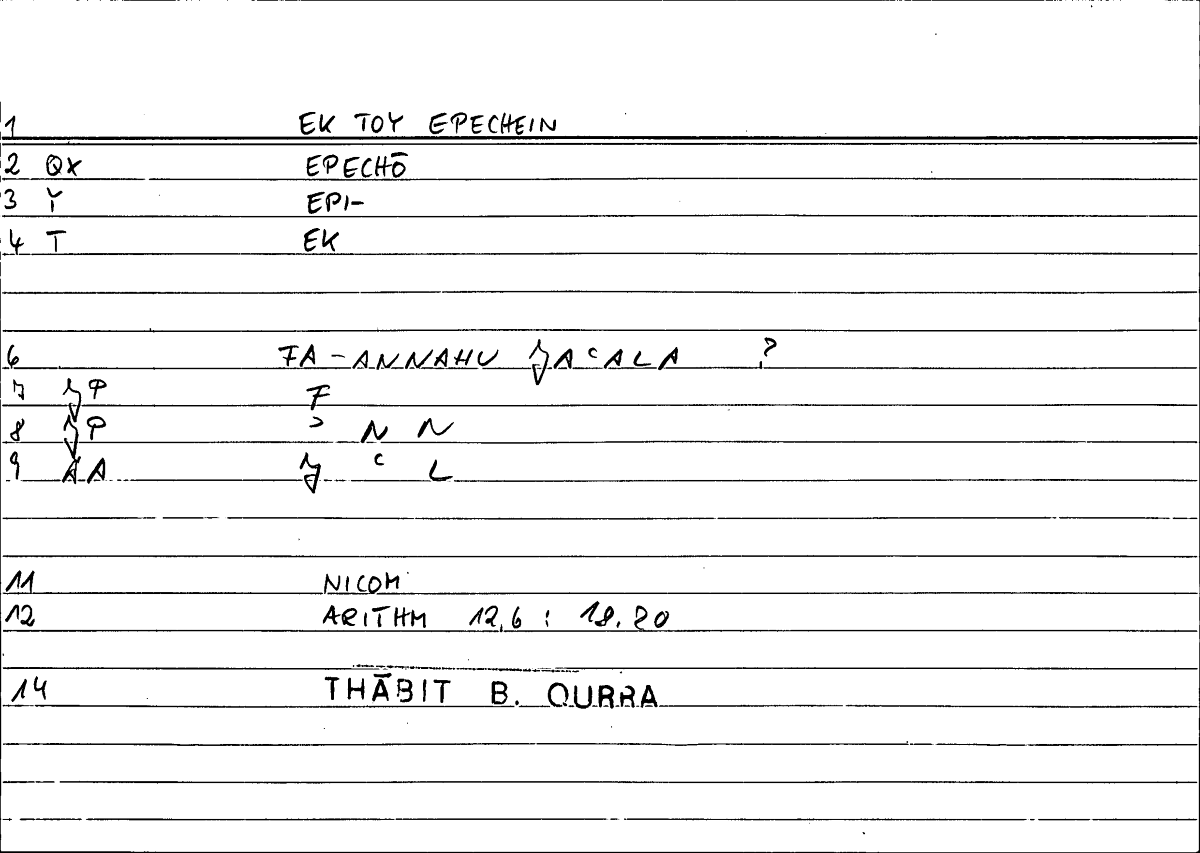 1 EK TOY EPECHEIN
2 QX EPECHŌ
3 Y EPI-
4 T EK
6 FA-ANNAHU ǦAʿALA ?
7 F
8 ʾ N N
9 AA Ǧ ʿ L
11 NICOM
12 ARITHM 12,6 : 18.20
14 THĀBIT B. QURRA